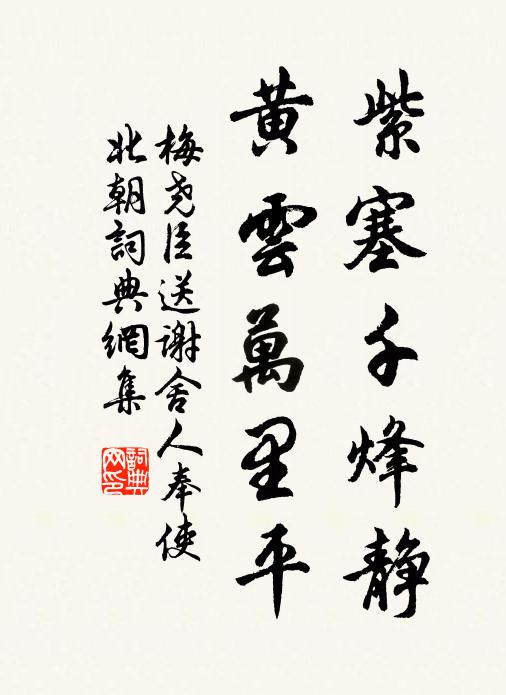 紫塞千烽静
黄雲萬里平
梅尧臣送谢舍人奉使
北朝詞典網集
詞典网印